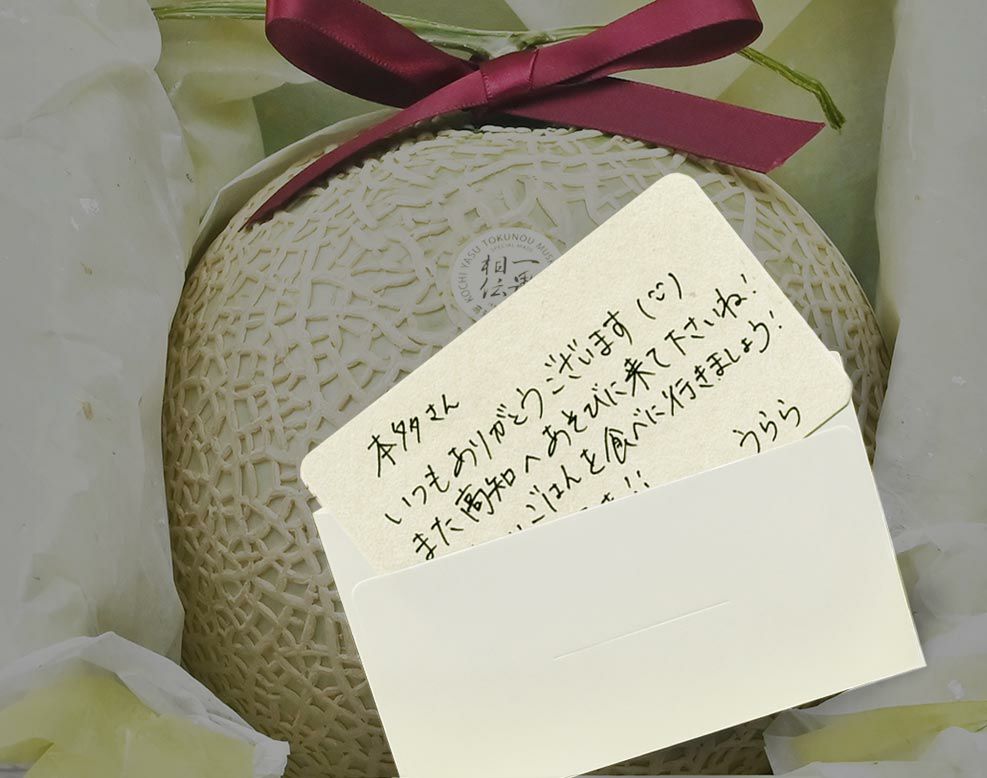 KOCHI YASU TOKUNOU MUS
SPECIAL MADE
一
相伝
本多さん
いつもありがとうございます(ᵕ̈)
また高知へあそびに来て下さいね!
ごはんを食べに行きましょう!
うらら